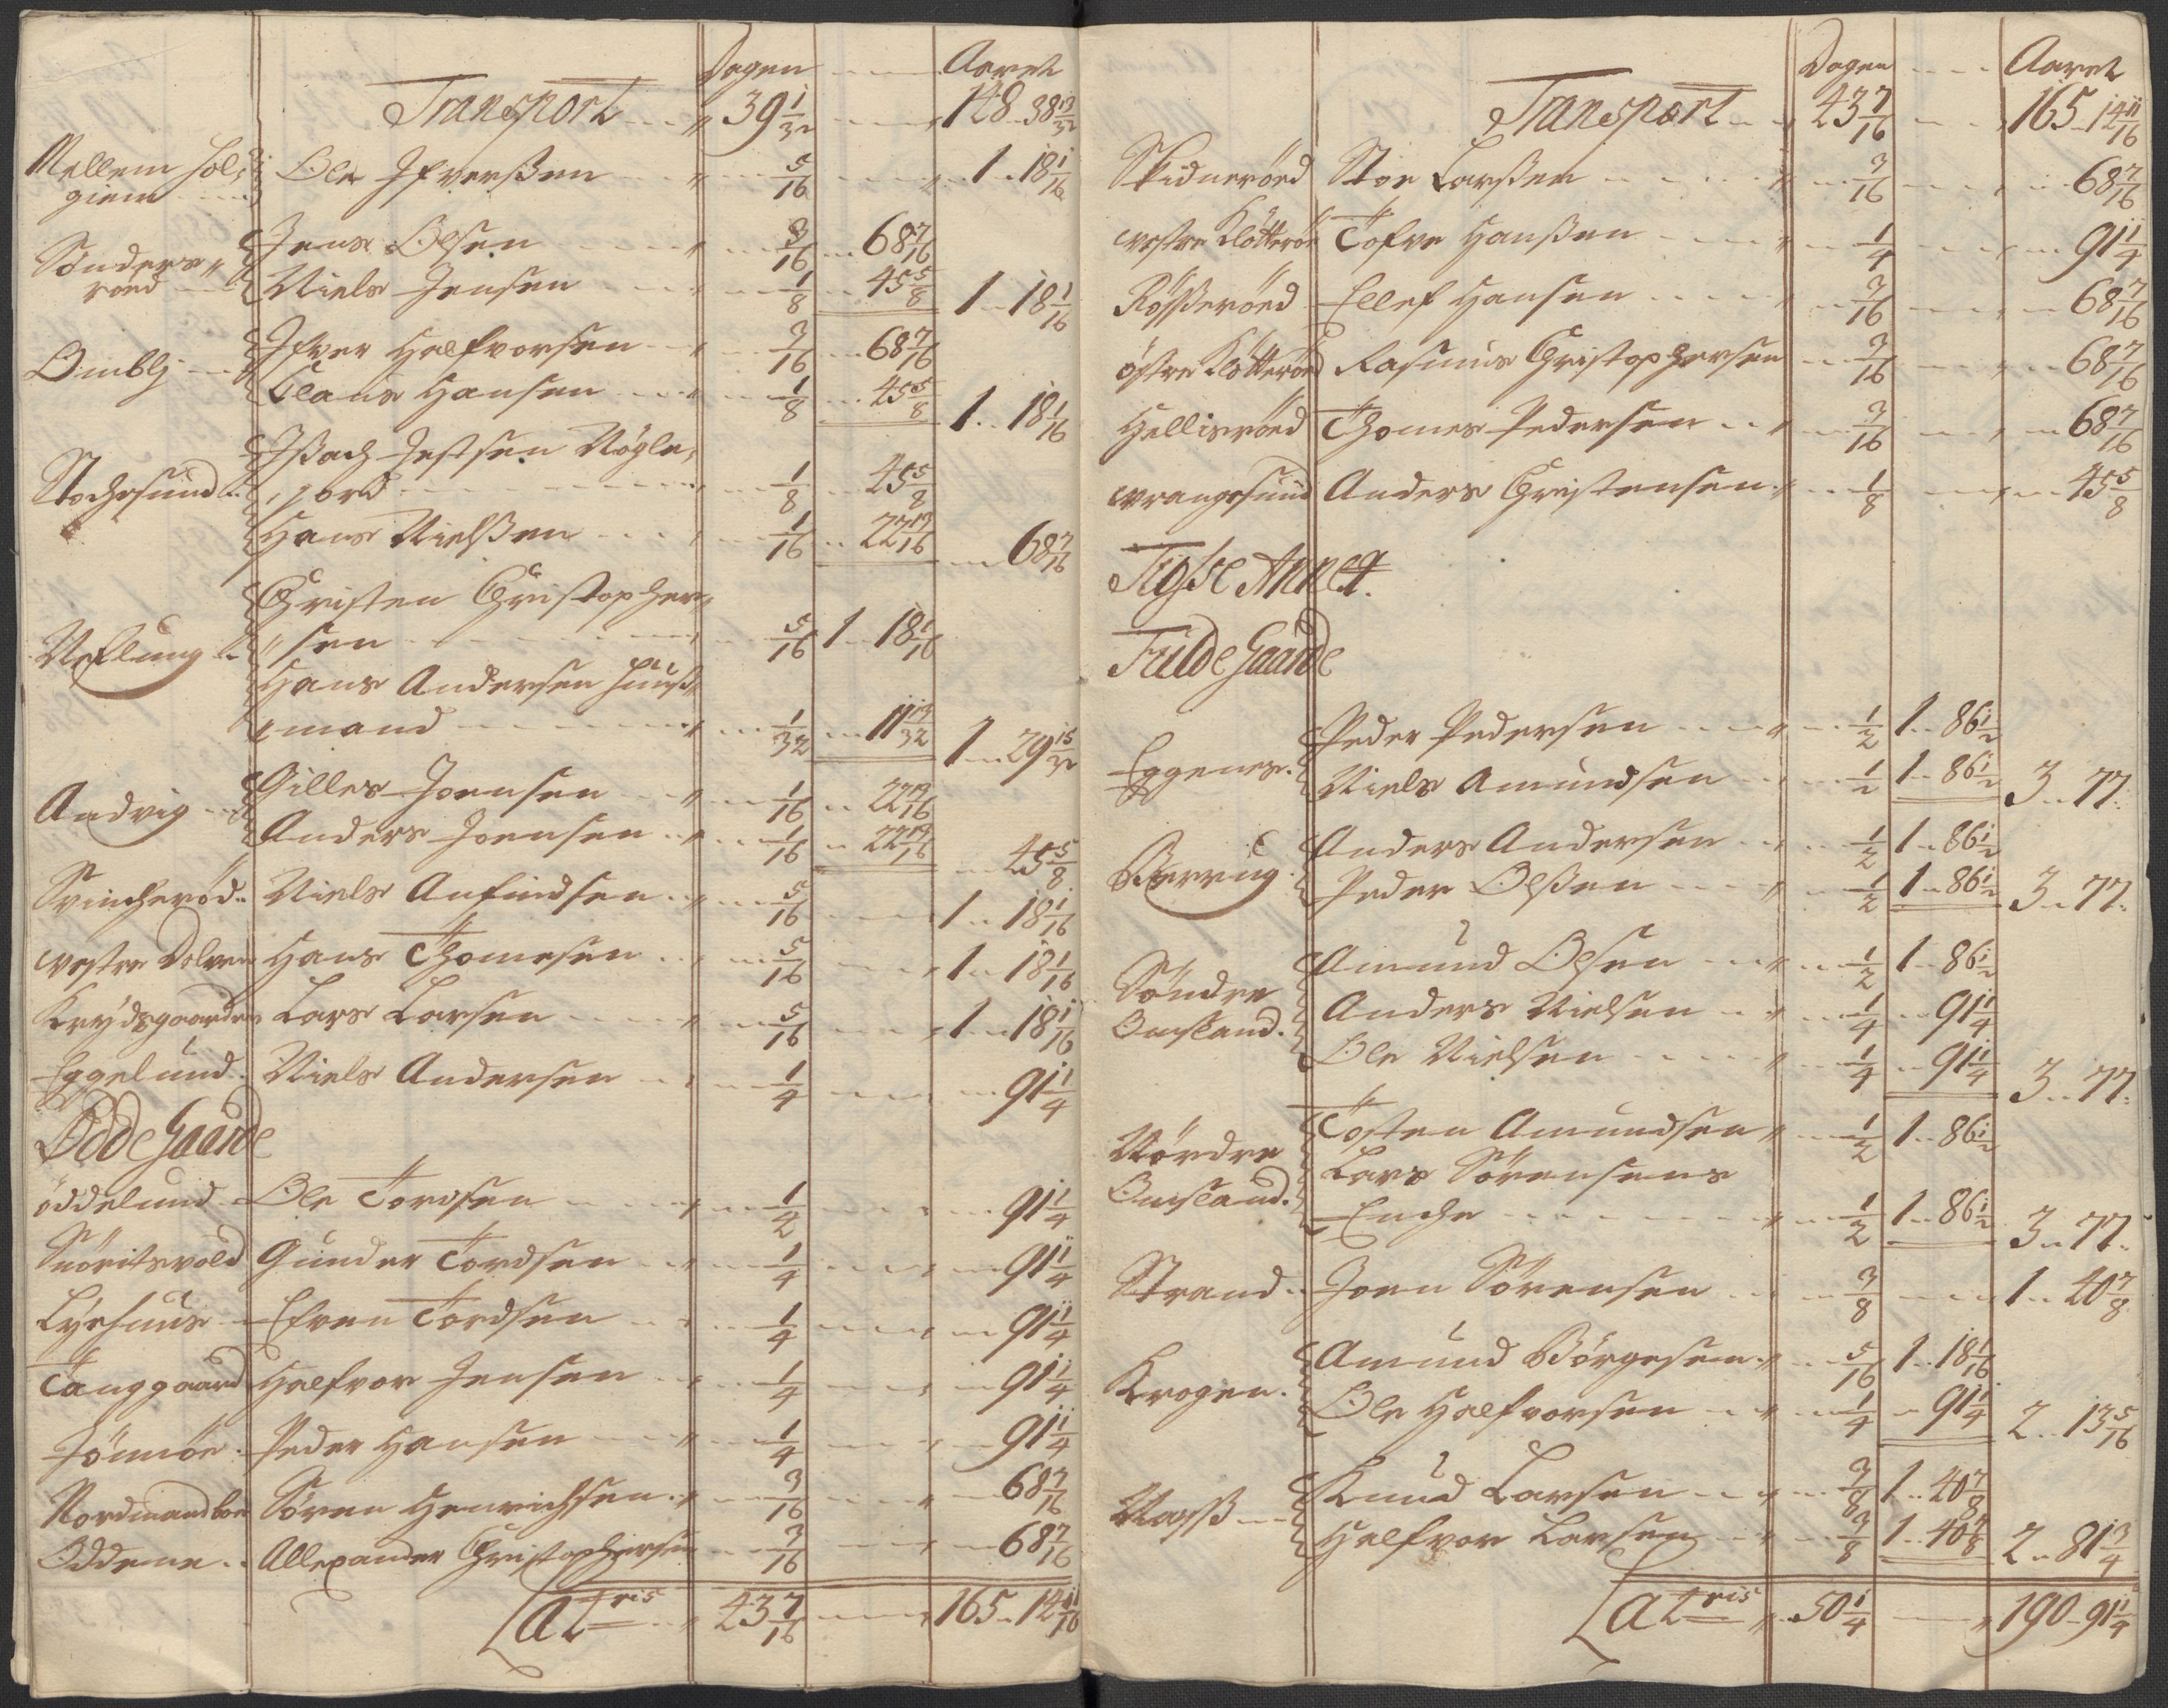 Dagen - - - Aaret
Transport - - " 39 1/32 - - - " 148 - 38 13/32
Mellem Hol= Ole Ifverßen - - " - 5/16 - - - " 1 - 18 1/16
giem - -
Sönders= Jens Olsen - - " 3/16 - 68 7/16
röed - - Niels Jensen - - " 1/8 - 45 5/8 1 - 18 1/16
Ombli - - Ifver Halfvorsen - " 3/16 - 68 7/16
Claus Hansen - - " 1/8 - 45 5/8 1 - 18 1/16
Ißach Jestsen Nögle=
Stochsund - jord - - - 1/8 - 45 5/8
Hans Nielßen - - - 1/16 - 22 13/16 - 68 7/16
Christen Christopher=
Neflung - " sen - - - 5/16 1 - 18 1/16
Hans Andersen Huuß=
mand - - - " 1/32 - 11 13/32 1 - 29 15/32
Aadvig - - Gilles Joensen - - " 1/16 - 22 13/16
Anders Joensen - " 1/16 - 22 13/16 - 45 5/8
Svincheröd - Niels Anfindsen - " 5/16 - - 1 - 18 1/16
Vestre Dolven Hans Thomesen - - 5/16 - - " 1 - 18 1/16
Krydsgaarden Lars Larsen - - " 5/16 - - " 1 - 18 1/16
Eggelund - Niels Andersen - - 1/4 - - - 91 1/4
Öde Gaarde
öddelund - Ole Tordsen - - " 1/4 - - - 91 1/4
Snöritsvold Gunder Tordsen - " 1/4 - - - 91 1/4
Lysehuus - Efven Tordsen - - 1/4 - - - 91 1/4
Tanggaard Halfvor Jensen - - 1/4 - - - 91 1/4
Jönnöe - Peder Hansen - - " 1/4 - - - 91 1/4
Nordmandboe Sören Henrichsen - " 3/16 - - " - 68 7/16
Oddene - - Allexander Christophersen - 3/16 - - " - 68 7/16
Lat=ris - - " 43 7/16 - - - " 165 - 14 11/16
Dagen - - - Aaret
Transport - - " 43 7/16 - - - " 165 - 14 11/16
Skidneröed Stoe Larßen - - - " 3/16 - - - " - 68 7/16
Vestre Klötteröe Tofve Hanßen - - - " 1/4 - - - 91 1/4
Rößeröed Ellef Hansen - - - 3/16 - - - 68 7/16
östre Klötteröed Rasmus Christophersen - 3/16 - - - 68 7/16
Hellisröed Thomes Pedersen - - " 3/16 - - - 68 7/16
Vrangesund Anders Christensen - " 1/8 - - - 45 5/8
Tiøße Annex.
Fulde Gaarde
Eggenes - Peder Pedersen - - - " 1/2 1 - 86 1/2
Niels Amundsen - - 1/2 1 - 86 1/2 3 - 77 -
Berrug - Anders Andersen - - 1/2 1 - 86 1/2
Peder Olßen - - - " 1/2 1 - 86 1/2 3 - 77 -
Söndre Amund Olsen - - " 1/2 1 - 86 1/2
Omsland - Anders Nielsen - - " 1/4 - 91 1/4
Ole Nielsen - - - " 1/4 - 91 1/4 3 - 77 -
Nördre Tosten Amundsen " 1/2 1 - 86 1/2
Omsland - Lars Sörensens
Enche - - - - - " 1/2 1 - 86 1/2 3 - 77 -
Strand - - Joen Sörensen - - 3/8 - - - 1 - 40 7/8
Krogen - Amund Börgesen - " 5/16 1 - 18 1/16
Ole Halfvorsen - - " 1/4 - 91 1/4 2 - 13 5/16
Naß - - Knud Larsen - - - 3/8 1 - 40 7/8
Halfvor Larsen - - 3/8 1 - 40 7/8 2 - 81 3/4
Lat=ris " 50 1/4 - - - " 190 - 91 1/4